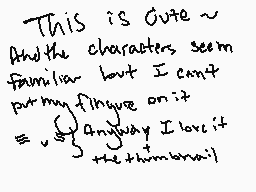 This is cute ~
And the characters seem
familiar but I can't
put my fingure on it
Anyway I love it
+
the thumbnail